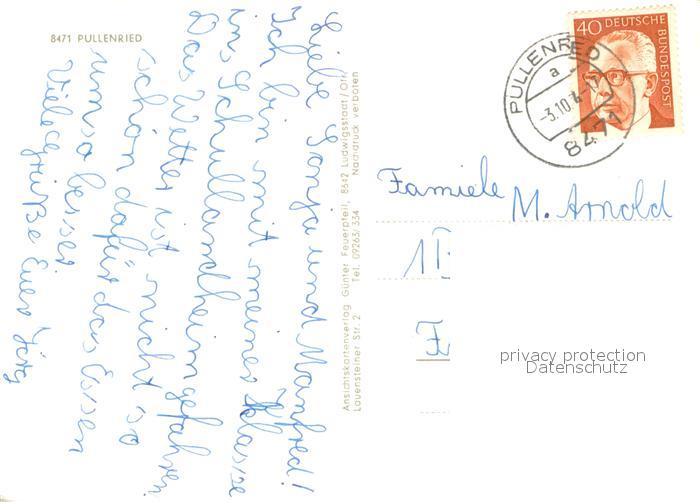 8471 PULLENRIED
Liebe Sonja und Manfred!
Ich bin mit meiner Klasse
ins Schullandheim gefahren
Das Wetter ist nicht so
schön dafür das Essen
umso besser
Viele grüße Euer Jörg
Ansichtskartenverlag Günter Feuerpfeil, 8642 Ludwigsstadt/Ofr.
Lauensteiner Str. 2 Tel. 09263/334 Nachdruck verboten
40 DEUTSCHE
BUNDESPOST
PULLENRIED
a
-3.10.
8471
Famiele
M. Arnold
privacy protection
Datenschutz